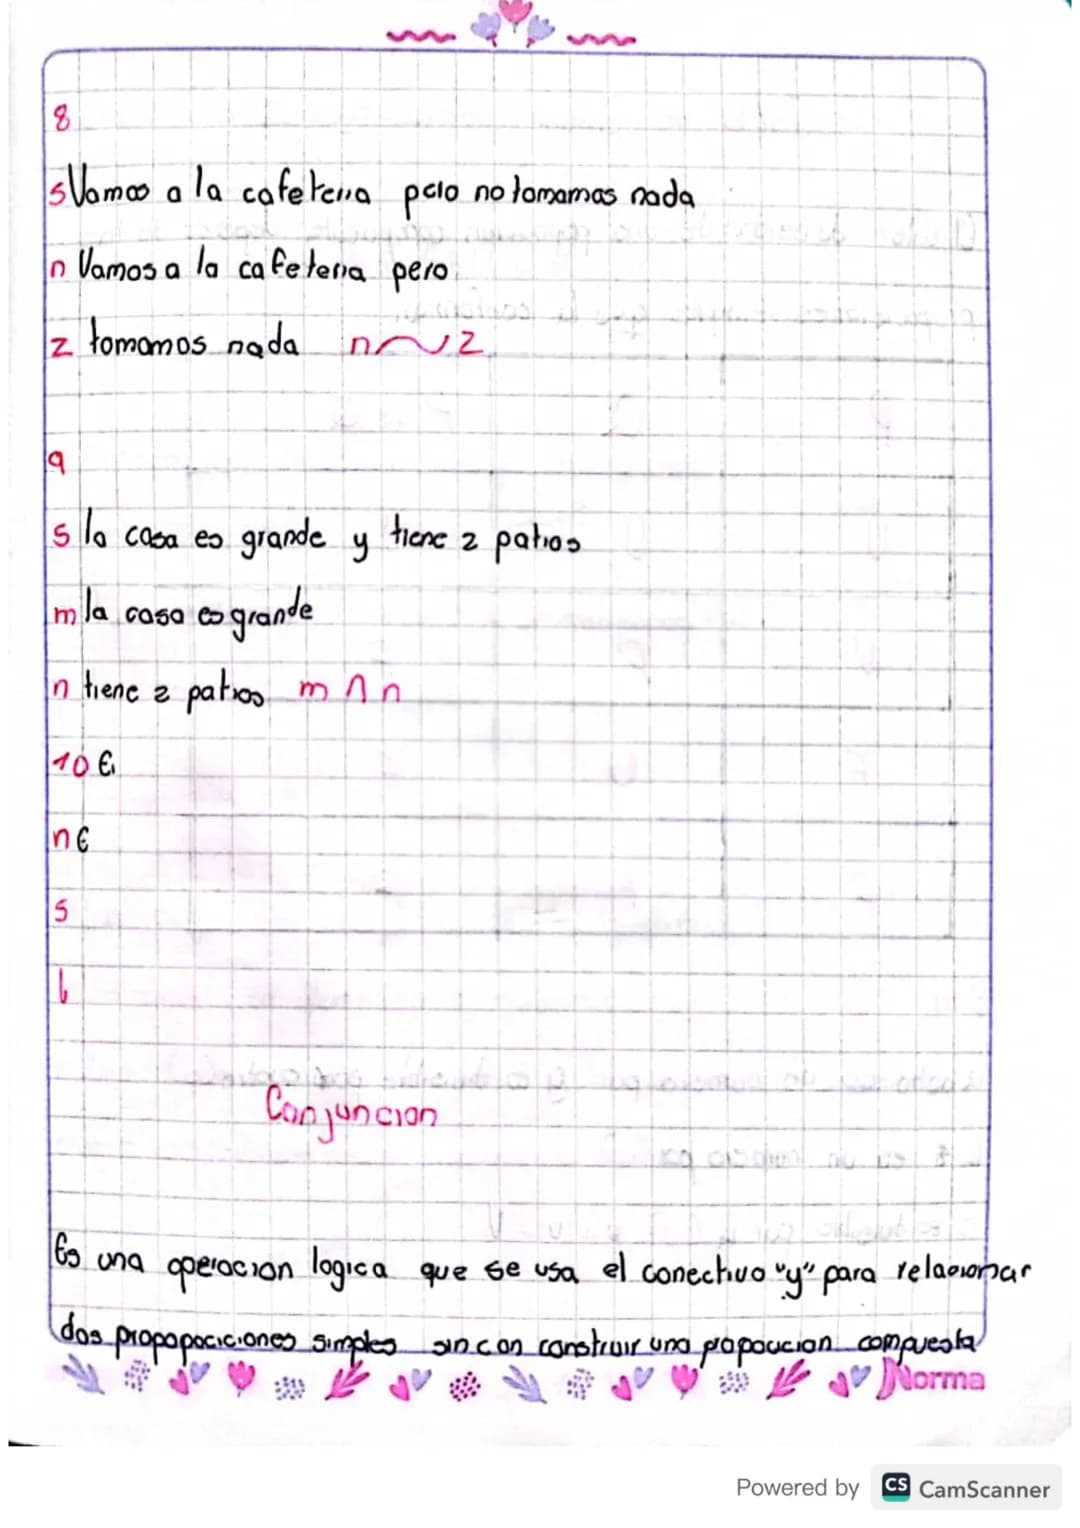 8
s Vamos a la cafeteria pero no tomamos nada
n Vamos a la cafeteria pero
z tomamos nada n ~ z
9
s la casa es grande y tiene 2 patios
m la casa es grande
n tiene 2 patios m ∧ n
10 E
n E
s
l
Conjuncion
Es una operacion logica que se usa el conectivo "y" para relacionar
dos propopociciones simples sin con construir una popoucion compuesta
Norma
Powered by CS CamScanner